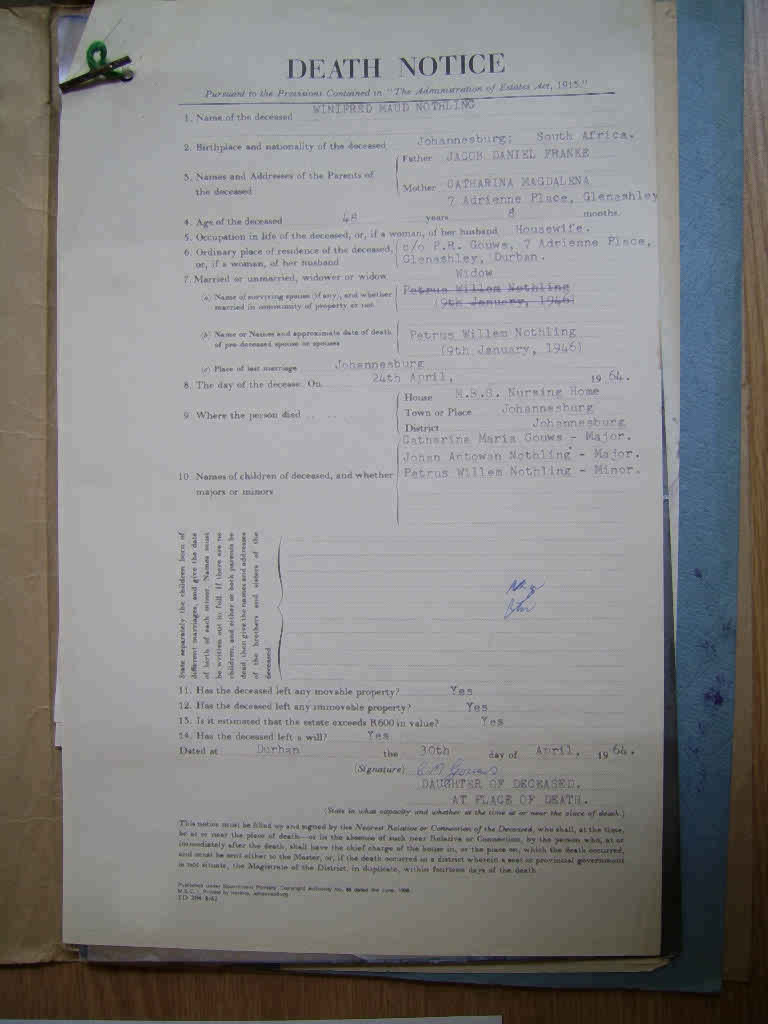 DEATH NOTICE
Pursuant to the Provisions Contained in "The Administration of Estates Act, 1915."
WINIFRED MAUD NOTHLING
1. Name of the deceased
2. Birthplace and nationality of the deceased Johannesburg: South Africa.
3. Names and Addresses of the Parents of the deceased
Father JACOB DANIEL FRANKE
Mother CATHARINA MAGDALENA
7 Adrienne Place, Glenashley
4. Age of the deceased 48 years 8 months.
5. Occupation in life of the deceased, or, if a woman, of her husband Housewife.
6. Ordinary place of residence of the deceased, or, if a woman, of her husband
c/o P.R. Gouws, 7 Adrienne Place,
Glenashley, Durban.
7. Married or unmarried, widower or widow Widow
(a) Name of surviving spouse (if any), and whether married in community of property or not
Petrus Willem Nothling
(9th January, 1946)
(b) Name or Names and approximate date of death of pre-deceased spouse or spouses
Petrus Willem Nothling
(9th January, 1946)
(c) Place of last marriage Johannesburg
8. The day of the decease: On 24th April, 1964.
9. Where the person died .. ..
House M.B.G. Nursing Home
Town or Place Johannesburg
District Johannesburg
10. Names of children of deceased, and whether majors or minors
Catharina Maria Gouws - Major.
Johan Antowan Nothling - Major.
Petrus Willem Nothling - Minor.
State separately the children born of
different marriages, and give the date
of birth of each minor. Names must
be written out in full. If there are no
children, and either or both parents be
dead then give the names and addresses
of the brothers and sisters of the
deceased
11. Has the deceased left any movable property? Yes
12. Has the deceased left any immovable property? Yes
13. Is it estimated that the estate exceeds R600 in value? Yes
14. Has the deceased left a will? Yes
Dated at Durban the 30th day of April, 1964.
(Signature) C M Gouws
DAUGHTER OF DECEASED.
AT PLACE OF DEATH.
(State in what capacity and whether at the time at or near the place of death.)
This notice must be filled up and signed by the Nearest Relative or Connection of the Deceased, who shall, at the time,
be at or near the place of death—or in the absence of such near Relative or Connection, by the person who, at or
immediately after the death, shall have the chief charge of the house in, or the place on, which the death occurred,
and must be sent either to the Master, or, if the death occurred in a district wherein a seat of provincial government
is not situate, the Magistrate of the District, in duplicate, within fourteen days of the death
Published under Government Printers' Copyright Authority No.